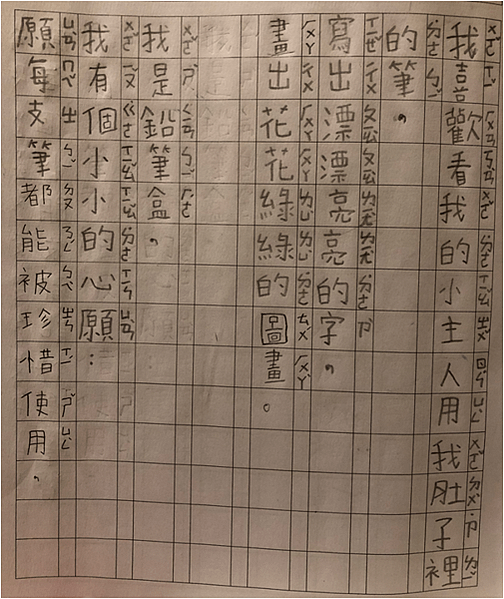 我喜歡看我的小主人用我肚子裡
的筆，
寫出漂漂亮亮的字，
畫出花花綠綠的圖畫。
我是鉛筆盒，
我有個小小的心願：
願每支筆都能被珍惜使用，